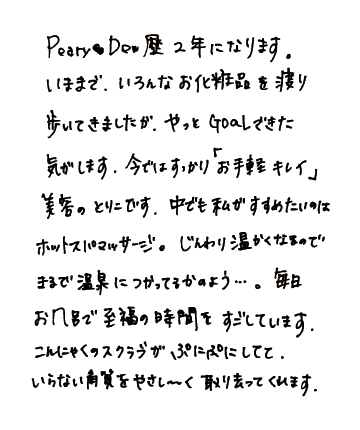 Peary●Dew歴2年になります。
いままで、いろんなお化粧品を渡り
歩いてきましたが、やっとGOALできた
気がします。今ではすっかり「お手軽キレイ」
美容のとりこです。中でも私がすすめたいのは
ホットスパマッサージ。じんわり温かくなるので
まるで温泉につかってるかのよう…。毎日
お風呂で至福の時間をすごしています。
こんにゃくのスクラブがぷにぷにしてて、
いらない角質をやさし〜く取り去ってくれます。